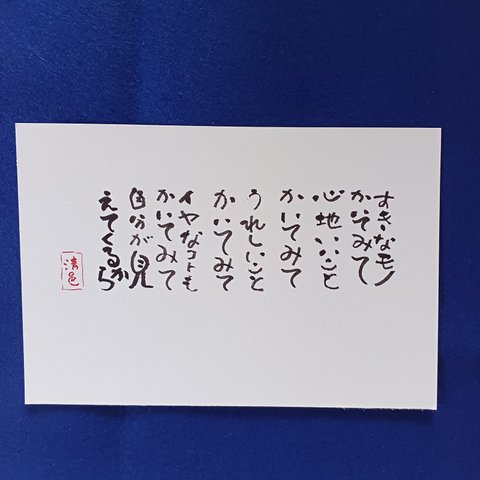 すきなモノ
かいてみて
心地いいこと
かいてみて
うれしいこと
かいてみて
イヤなコトも
かいてみて
自分が見
えてくるから
清邑